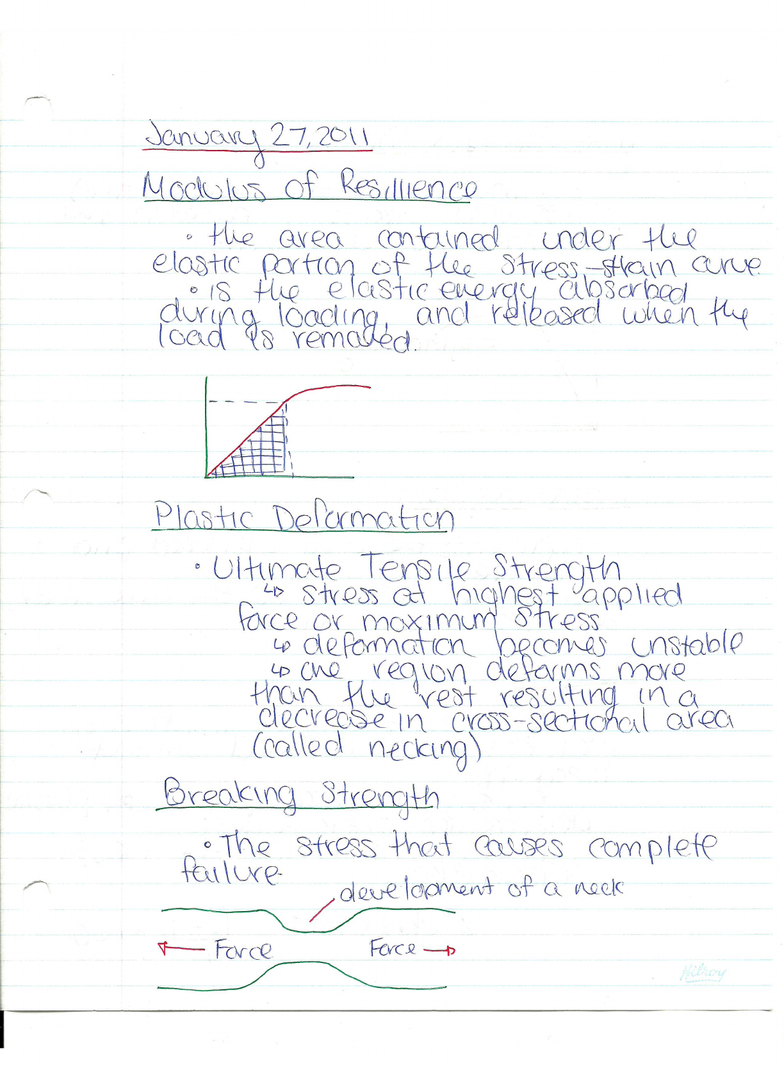 January 27, 2011
Modulus of Resillience
• the area contained under the
elastic portion of the stress-strain curve.
• is the elastic energy absorbed
during loading, and released when the
load is removed.
Plastic Deformation
• Ultimate Tensile Strength
↳ stress at highest applied
force or maximum stress
↳ deformation becomes unstable
↳ one region deforms more
than the rest resulting in a
decrease in cross-sectional area
(called necking)
Breaking Strength
• The stress that causes complete
failure.
development of a neck
← Force Force →
Hilroy